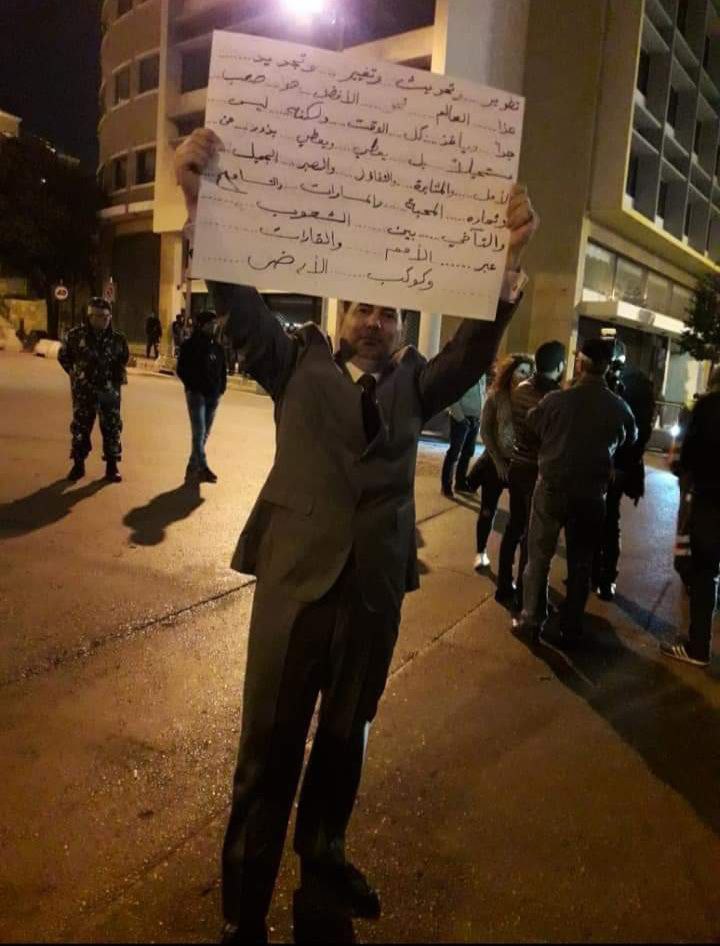 تطوير ... وتحديث وتغيير ... وتجديد ...
هذا ... العالم ... نحو ... الأفضل هو صعب
جداً ... ويأخذ ... كل الوقت ... ولكنه ليس
مستحيلاً بل يعطي ... ويعطي بذور ... من
الأمل ... والمثابرة ... والتفاؤل ... والصبر ... الجميل ...
وثماره ... المحبة ... والمساواة ... والتسامح
والتآخي ... بين ... الشعوب ...
عبر ... الأمم ... والقارات ...
وكوكب ... الأرض